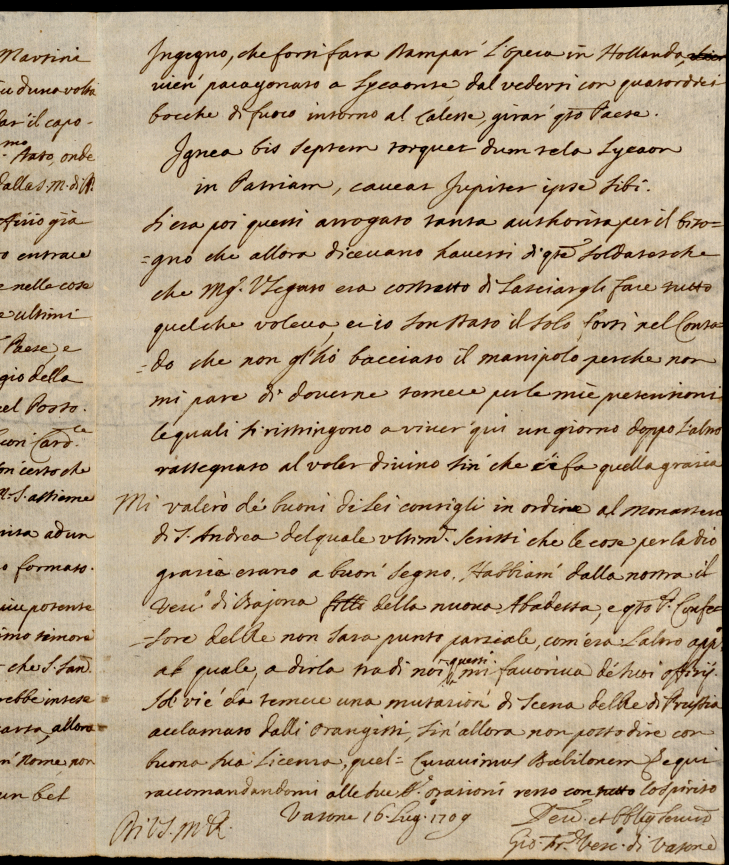 Martini
d'una volta
dar' il capo-
stato, onde
dalla S. M. di
già
entrare
e nelle cose
e ultimi
Paese, e
gio della
del Posto.
buon Card.le
con certo che
assieme
ad un
formato.
potente
timore
- che S. San.
rebbe intese
carta, allora
un' Nome non
un bel
Ingegno, che forsi fara stampar' L'opera in Hollanda,
vien' paragonato a Lycaonte dal vedersi con quatordeci
bocche di fuoco intorno al Calesse, girar' q̃to Paese.
Ignea bis septem torquet dum tela Lycaon
in Patriam, caveat Jupiter ipse sibi.
Si era poi questi arrogato tanta authorità per il biso=
=gno che allora dicevano haversi di q̃te soldatesche
che Mg.r V.Legato era costretto di Lasciargli fare tutto
quel che voleva, et io son stato il solo forsi nel Conta=
=do che non gl'hò bacciato il manipolo perche non
mi pare di doverne temere per le mie pretensioni
le quali si ristringono a viver' qui un giorno doppo L'altro
rassegnato al voler divino sin' che fa quella grazia
Mi valerò de buoni di Lei consigli in ordine al Monastero
di S. Andrea del quale ultim.te scrissi che le cose per la dio
grazia erano a buon' segno. Habbiam' dalla nostra il
Vesc.o di Bajona della nuova Abadessa, e q̃to P. Confe=
=sore del Re non sara punto parziale, com'era L'altro app.o
al quale, a dirla tra di noi, questi mi favoriva de suoi offizij.
Sol v'è da temere una mutazion' di Scena del Re di Prussia
acclamato dalli Orangisti, sin' allora non posso dire con
buona sua Licenza, quel= Curavimus Babilonem E qui
raccomandandomi alle sue S.te orazioni resto con tutto lo spirito
Di V. S. M. R. Vasone 16. Lug.o 1709
Dev.mo et Obblig.mo Serv.re
Gio. Fr.co Vesc.o di Vasone